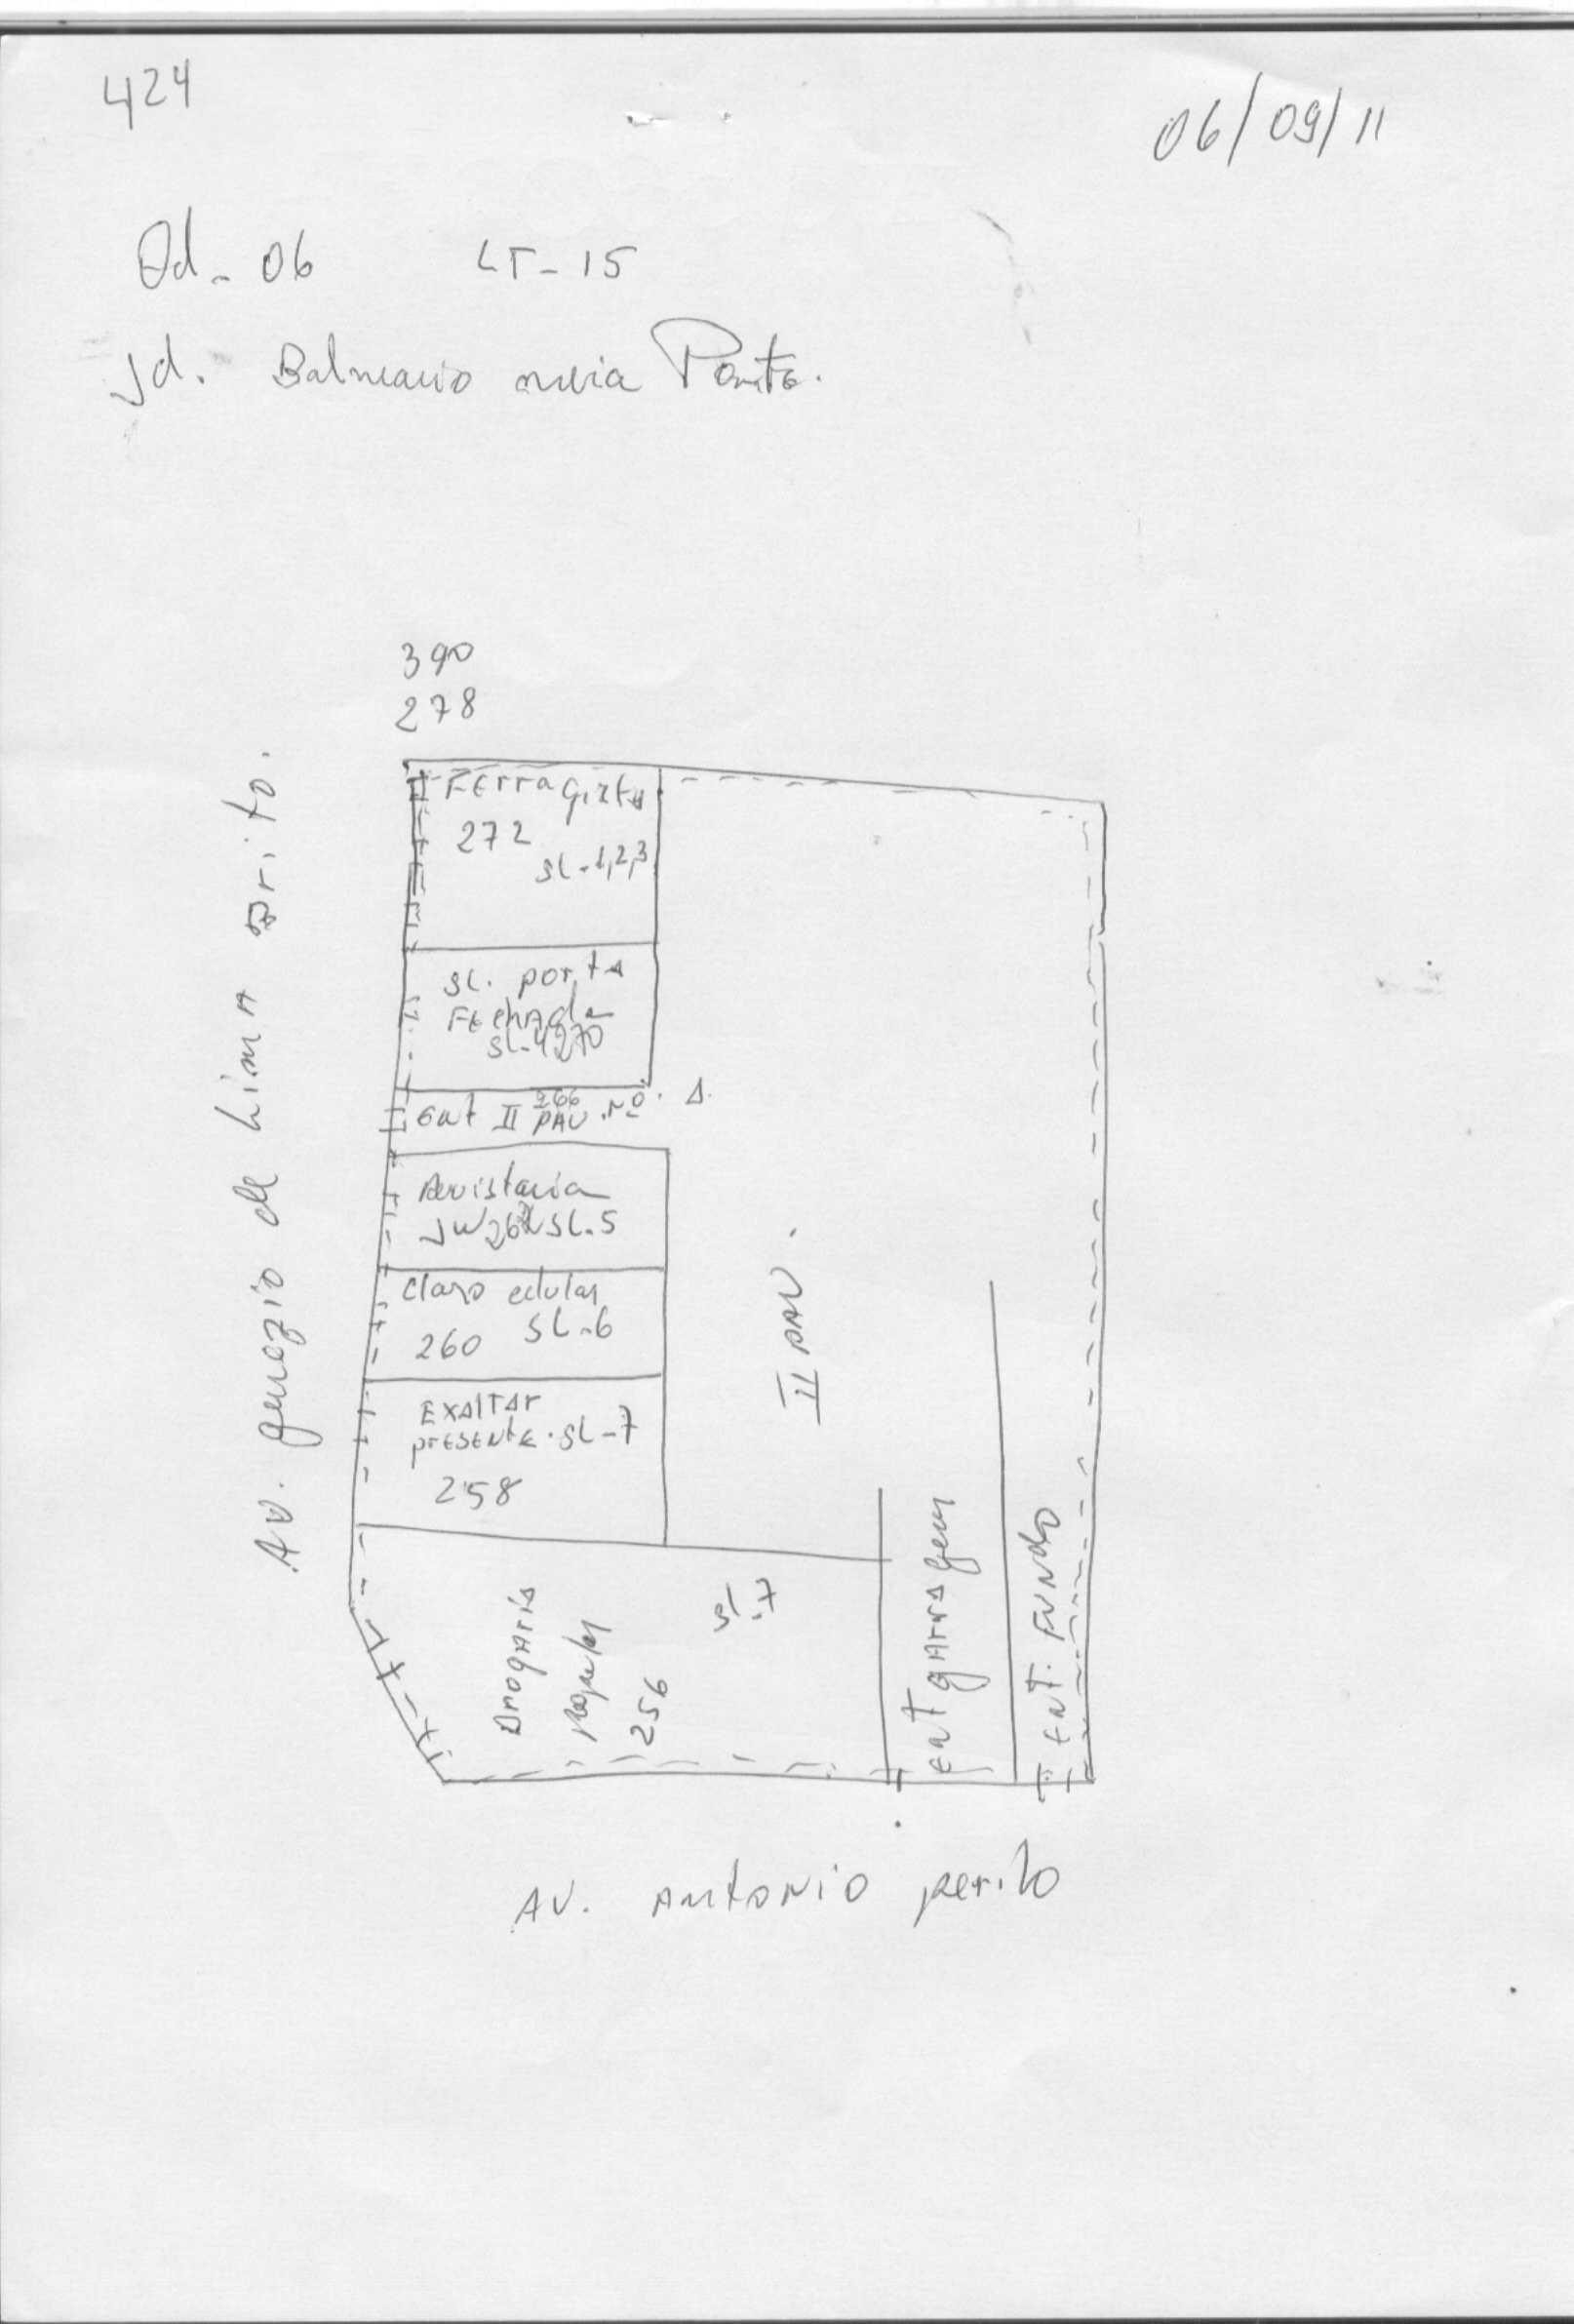 424
06/09/11
Qd- 06 LT-15
Jd. Balneario meia Ponte.
390
278
Av. genezio de Lima Brito.
FErragista
272
SL-1,2,3
SL. porta
FEchada
SL-4 270
Ent II PAV. Nº. A.
266
Revistaria
JW SL.5
Claro celular
260 SL-6
EXALTAr
prESENtE. SL-7
258
Drogaria
256
SL-7
II PAV.
Ent garragem
Ent. FUNdo
AV. Antonio perilo